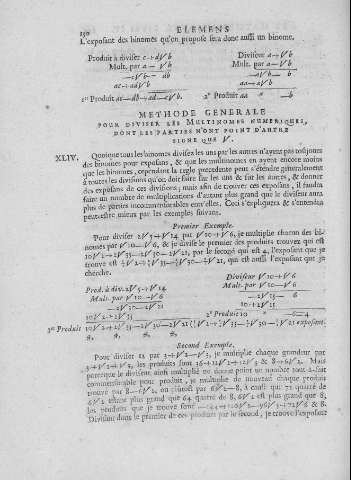 150 ELEMENS
L'exposant des binomes qu'on propose sera donc aussi un binome.
Produit à diviser c+d√b Diviseur a+√b
Mult. par a-√b Mult. par a-√b
-c√b- db -a√b- b
ac+ad√b aa+a√b
1er Produit ac-db+ad-c√b. 2e Produit aa * -b
METHODE GENERALE
POUR DIVISER LES MULTINOMES NUMERIQUES,
DONT LES PARTIES N'ONT POINT D'AUTRE
SIGNE QUE √.
XLIV. Quoique tous les binomes divisez les uns par les autres n'ayent pas toûjours
des binomes pour exposans, & que les multinomes en ayent encore moins
que les binomes, cependant la regle precedente peut s'étendre généralement
à toutes les divisions qu'on doit faire sur les uns & sur les autres, & donner
des exposans de ces divisions; mais afin de trouver ces exposans, il faudra
faire un nombre de multiplications d'autant plus grand que le diviseur aura
plus de parties incommensurables entr'elles. Ceci s'expliquera & s'entendra
peut-estre mieux par les exemples suivans.
Premier Exemple.
Pour diviser 2√5+√14 par √10+√6, je multiplie chacun des bi-
nomes par √10-√6, & je divise le premier des produits trouvez qui est
10√2+2√35-2√30-2√21, par le second qui est 4, l'exposant que je
trouve est
cherche.
Diviseur √10+√6
Prod. à div. 2√5+√14 Mult. par √10-√6
Mult. par √10-√6 -2√15- 6
-2√30-2√21 10+2√15
10√2+2√35 2e Produit 10 * -6=4
Second Exemple.
Pour diviser 12 par 3+√2-√3, je multiplie chaque grandeur par
3+√2+√3, les produits sont 36+12√2+12√3 & 8+6√2. Mais
parceque le diviseur ainsi multiplié ne donne point un nombre tout-à-fait
commensurable pour produit, je multiplie de nouveau chaque produit
trouvé par 8-6√2, ou plûtost par 6√2-8, à cause que 72 quarré de
6√2 estant plus grand que 64 quarré de 8, 6√2 est plus grand que 8,
les produits que je trouve sont
Divisant donc le premier de ces produits par le second, je trouve l'exposant